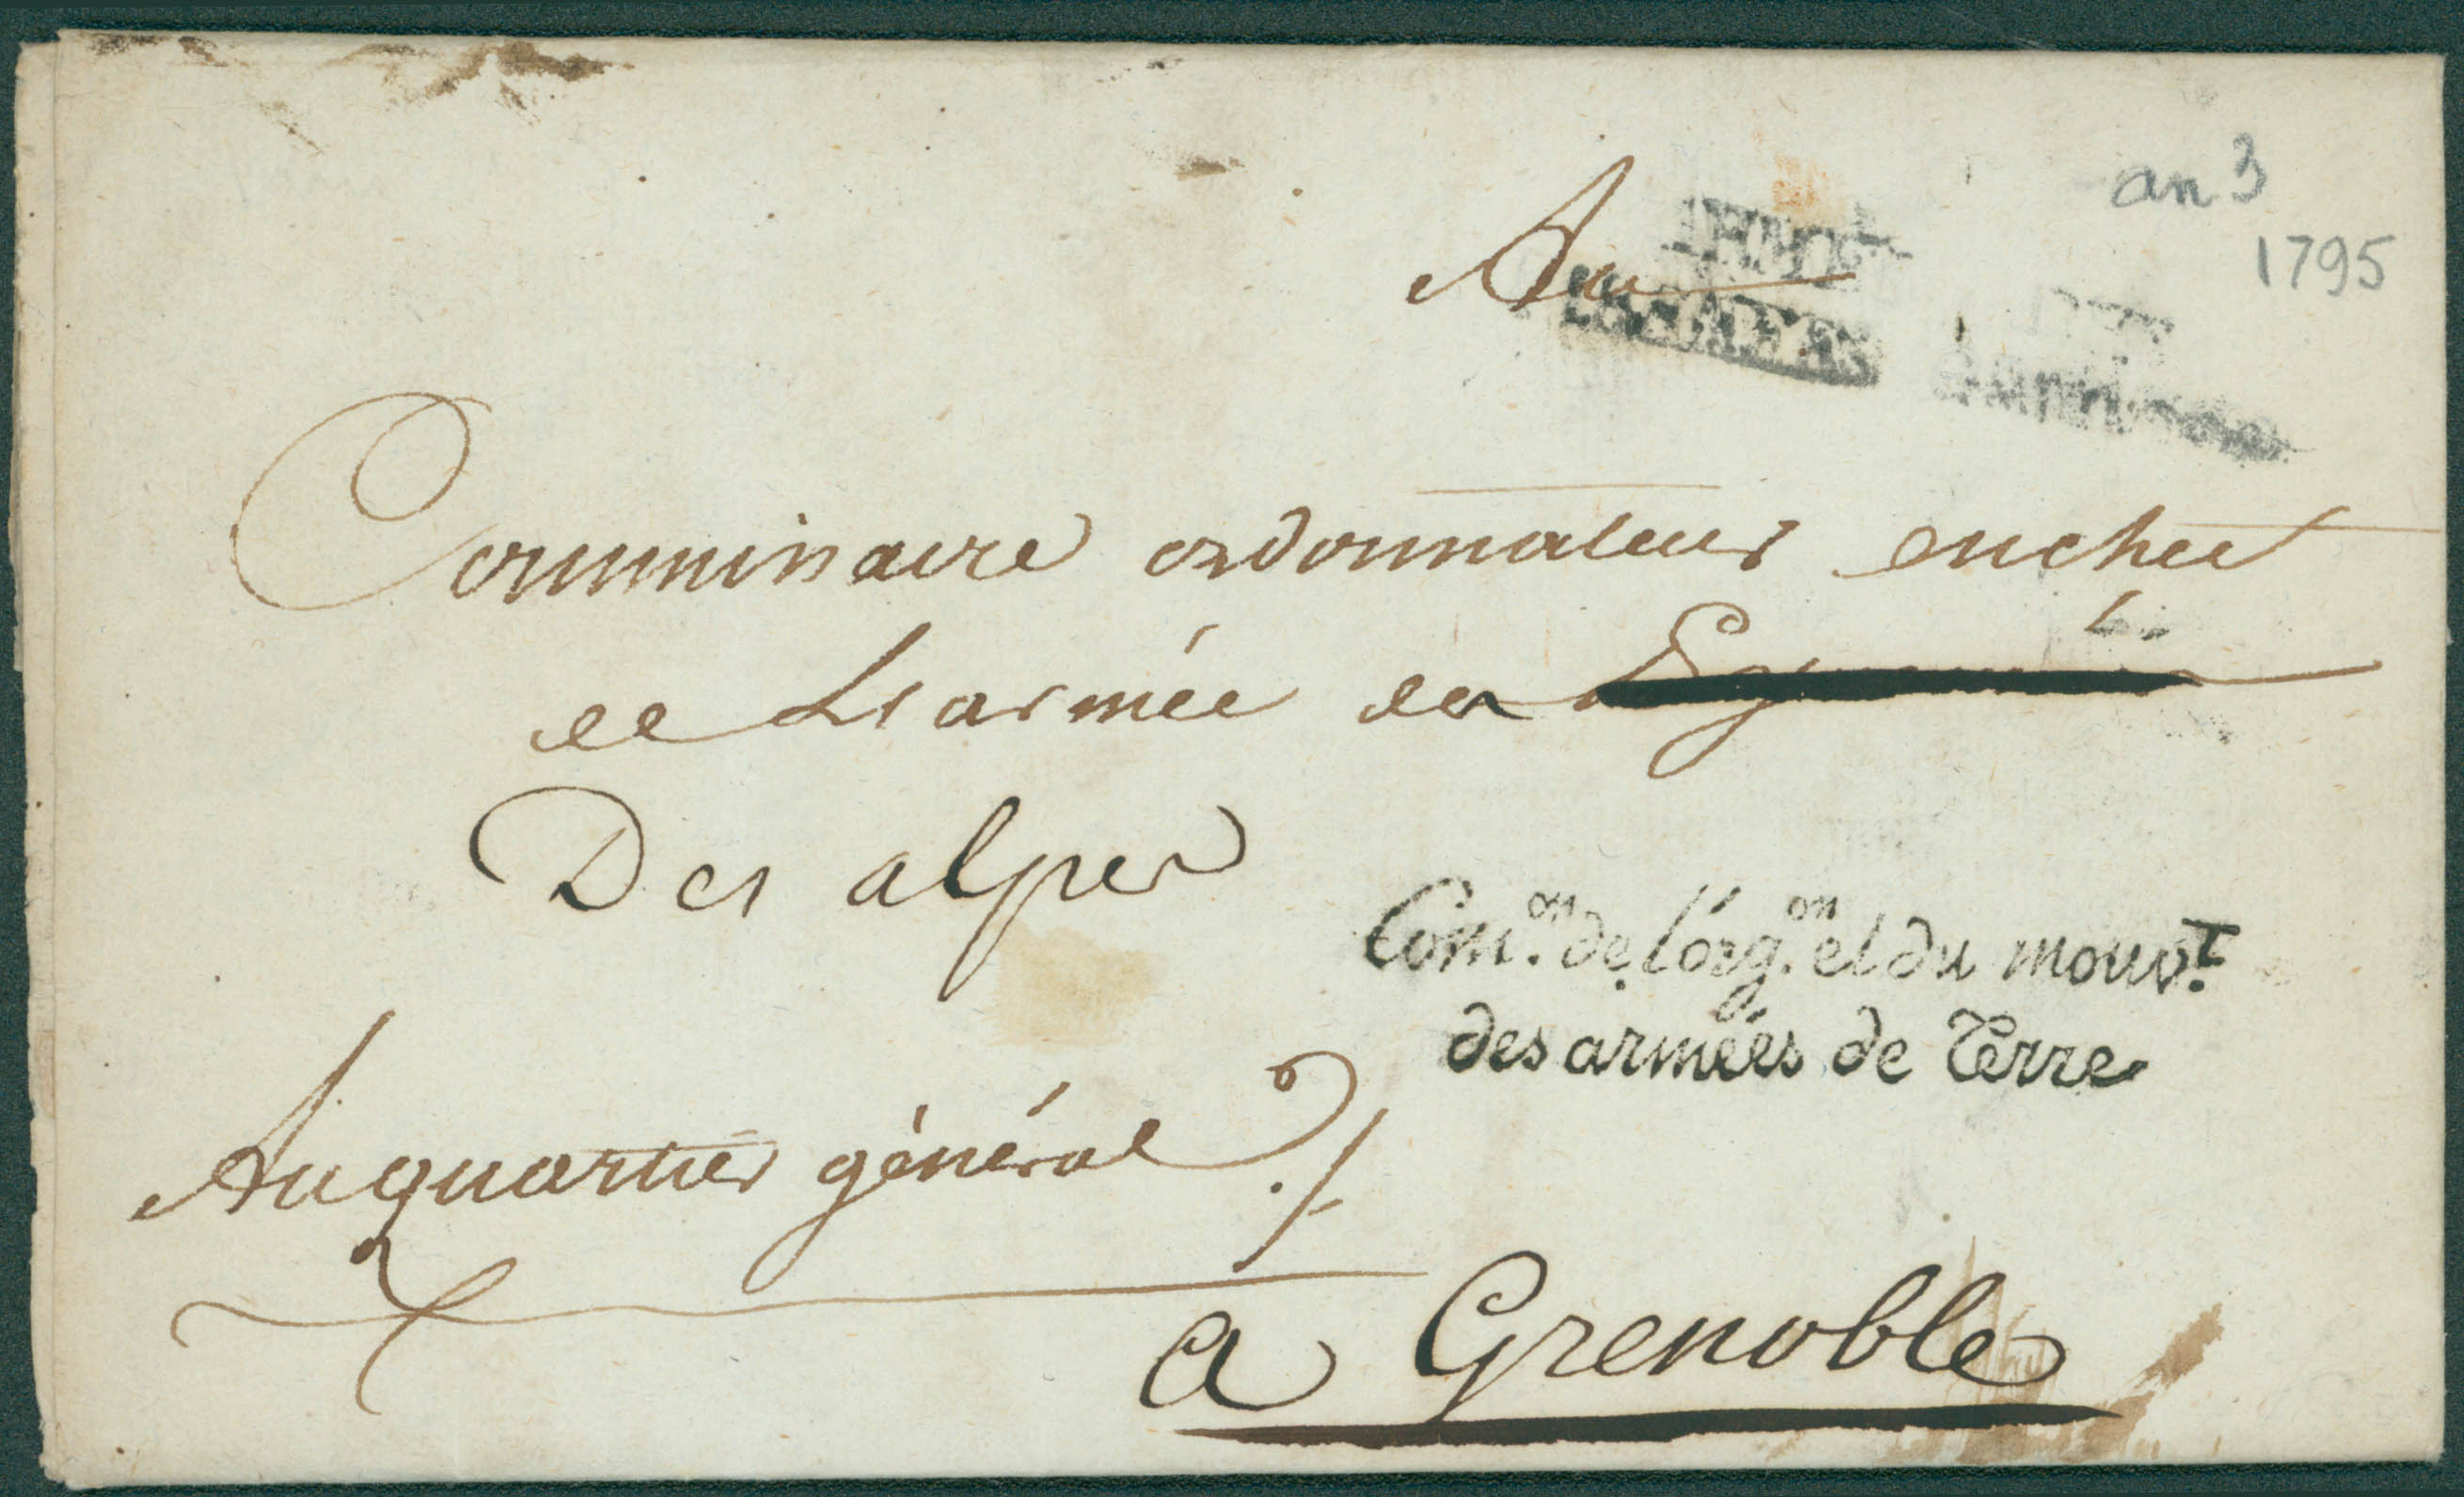 an 3
1795
Au
Commissaire ordonnateur en chef
de L'armée de
Des alpes
Com.on de l'org.on et du mouv.t
des armées de Terre
Au quartier général ./.
a Grenoble